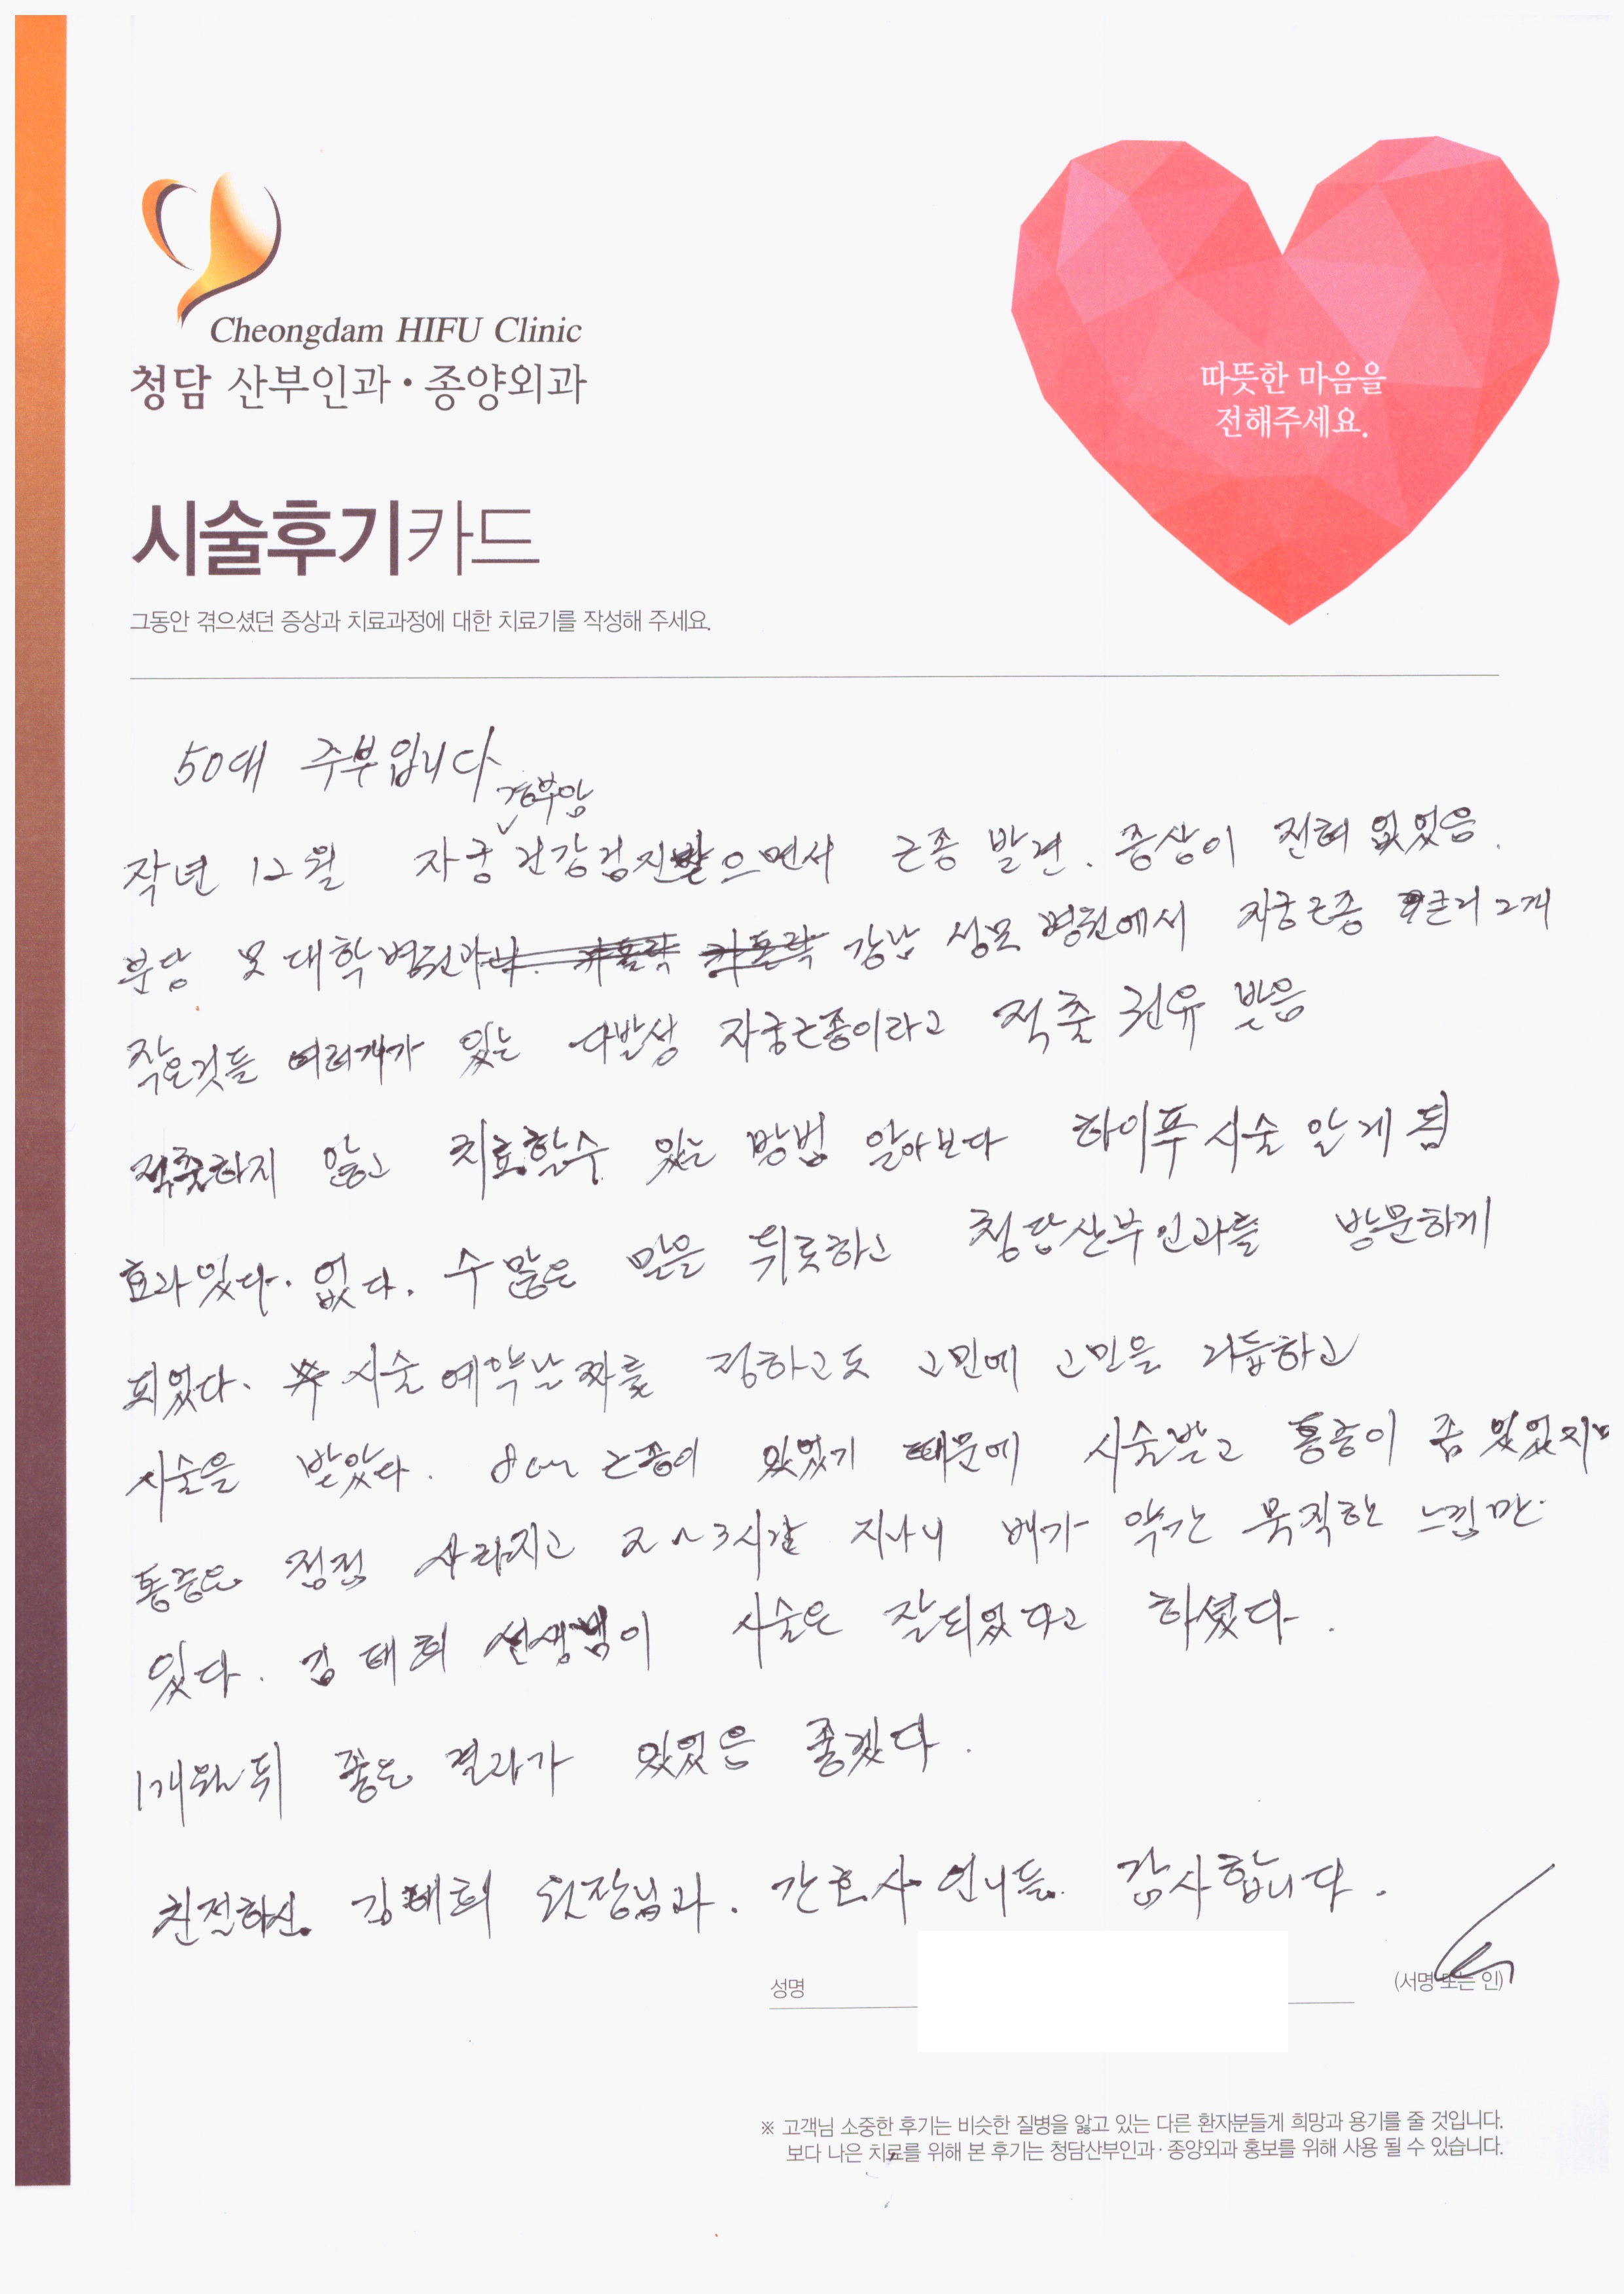 Cheongdam HIFU Clinic
청담 산부인과·종양외과
따뜻한 마음을
전해주세요.
시술후기카드
그동안 겪으셨던 증상과 치료과정에 대한 치료기를 작성해 주세요.
50대 주부입니다
경부암
작년 12월 자궁 건강검진받으면서 근종 발견. 증상이 전혀 없었음.
분당 모 대학병원과 강남 성모 병원에서 자궁근종 큰거 2개
작은것들 여러개가 있는 다발성 자궁근종이라고 적출 권유 받음
적출하지 않고 치료할수 있는 방법 알아보다 하이푸 시술 알게 됨
효과있다. 없다. 수 많은 말을 뒤로하고 청담산부인과를 방문하게
되었다. 시술 예약날짜를 정하고도 고민에 고민을 거듭하고
시술을 받았다. 8cm 근종이 있었기 때문에 시술받고 통증이 좀 있었지만
통증은 점점 사라지고 2~3시간 지나니 배가 약간 묵직한 느낌만
있다. 김태희 선생님이 시술은 잘되었다고 하셨다.
1개월뒤 좋은 결과가 있었음 좋겠다.
친절하신 김태희 원장님과. 간호사 언니들 감사합니다.
성명 (서명 또는 인)
※ 고객님 소중한 후기는 비슷한 질병을 앓고 있는 다른 환자분들게 희망과 용기를 줄 것입니다.
보다 나은 치료를 위해 본 후기는 청담산부인과·종양외과 홍보를 위해 사용 될 수 있습니다.